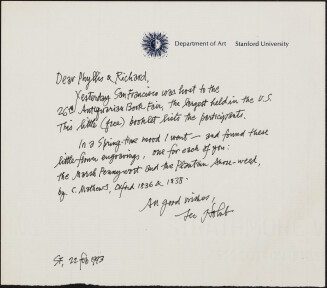 Department of Art Stanford University
Dear Phyllis & Richard,
Yesterday San Francisco was host to the
26th Antiquarian Book Fair, the largest held in the U.S
This little (free) booklet lists the participants.
In a Spring-time mood I went — and found these
little flower engravings, one for each of you:
the Marsh Pennywort and the Plantain Shore-weed,
by C. Mathews, Oxford 1836 & 1838.
All good wishes,
Leo Holub
SF, 22 feb 1993